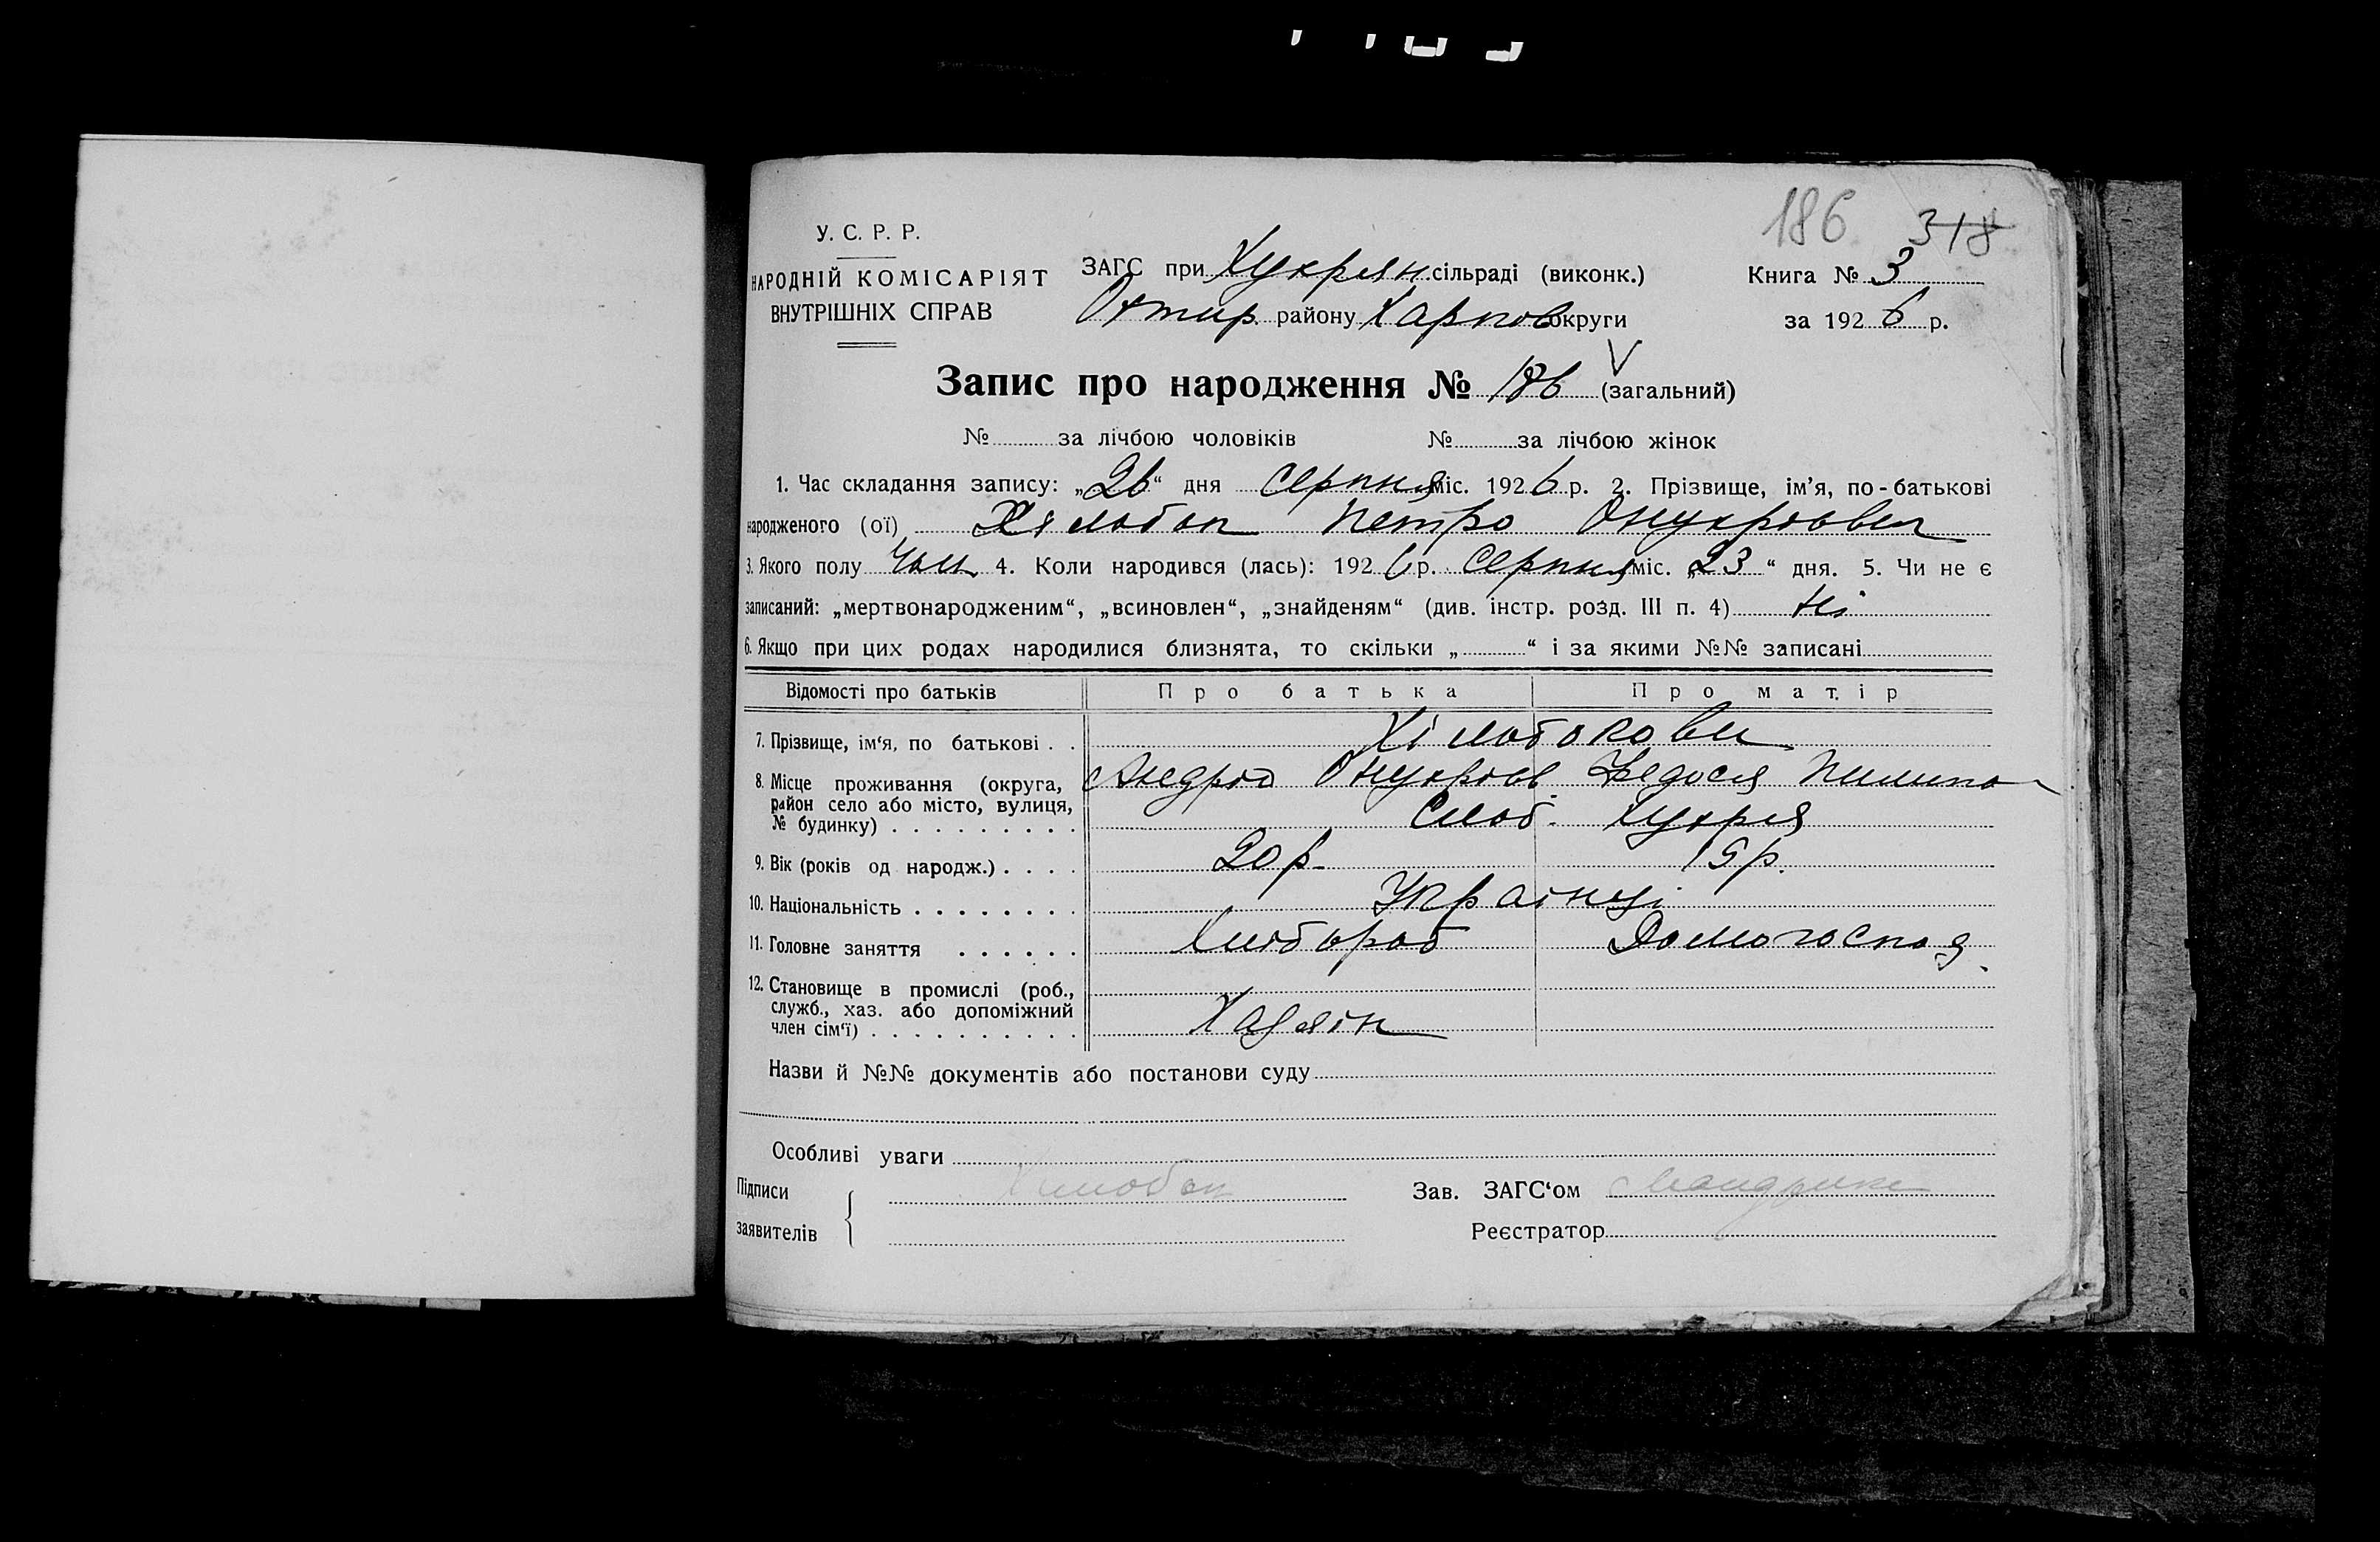 186 318
У. С. Р. Р.
НАРОДНІЙ КОМІСАРІЯТ
ВНУТРІШНІХ СПРАВ
ЗАГС при Хухрян. сільраді (виконк.)
Охтир. району Харьков округи
Книга № 3
за 1926 р.
Запис про народження № 186 (загальний)
№ за лічбою чоловіків № за лічбою жінок
1. Час складання запису: „26“ дня серпня міс. 1926 р. 2. Прізвище, ім’я, по-батькові
народженого (ої) Хілобок Петро Онухрієвич
3. Якого полу Чол. 4. Коли народився (лась): 1926 р. серпня міс. „23“ дня. 5. Чи не є
записаний: „мертвонародженим“, „всиновлен“, „знайденям“ (див. інстр. розд. III п. 4) Ні
6. Якщо при цих родах народилися близнята, то скільки „ “ і за якими №№ записані
Відомості про батьків Про батька Про матір
7. Прізвище, ім‘я, по батькові . . Хілобокови
8. Місце проживання (округа, Андрій Онухрієв. Федося Пилипо
район село або місто, вулиця,
№ будинку) . . . . . . . . . Слоб. Хухря
9. Вік (років од народж.) . . . . 20 р. 19 р.
10. Національність . . . . . . . . Українці
11. Головне заняття . . . . . . Хлібороб Домогоспод.
12. Становище в промислі (роб.,
служб., хаз. або допоміжний
член сім‘ї) . . . . . . . . . . Хазяїн
Назви й №№ документів або постанови суду
Особливі уваги
Підписи
заявителів
Хилобок
Зав. ЗАГС‘ом
Реєстратор